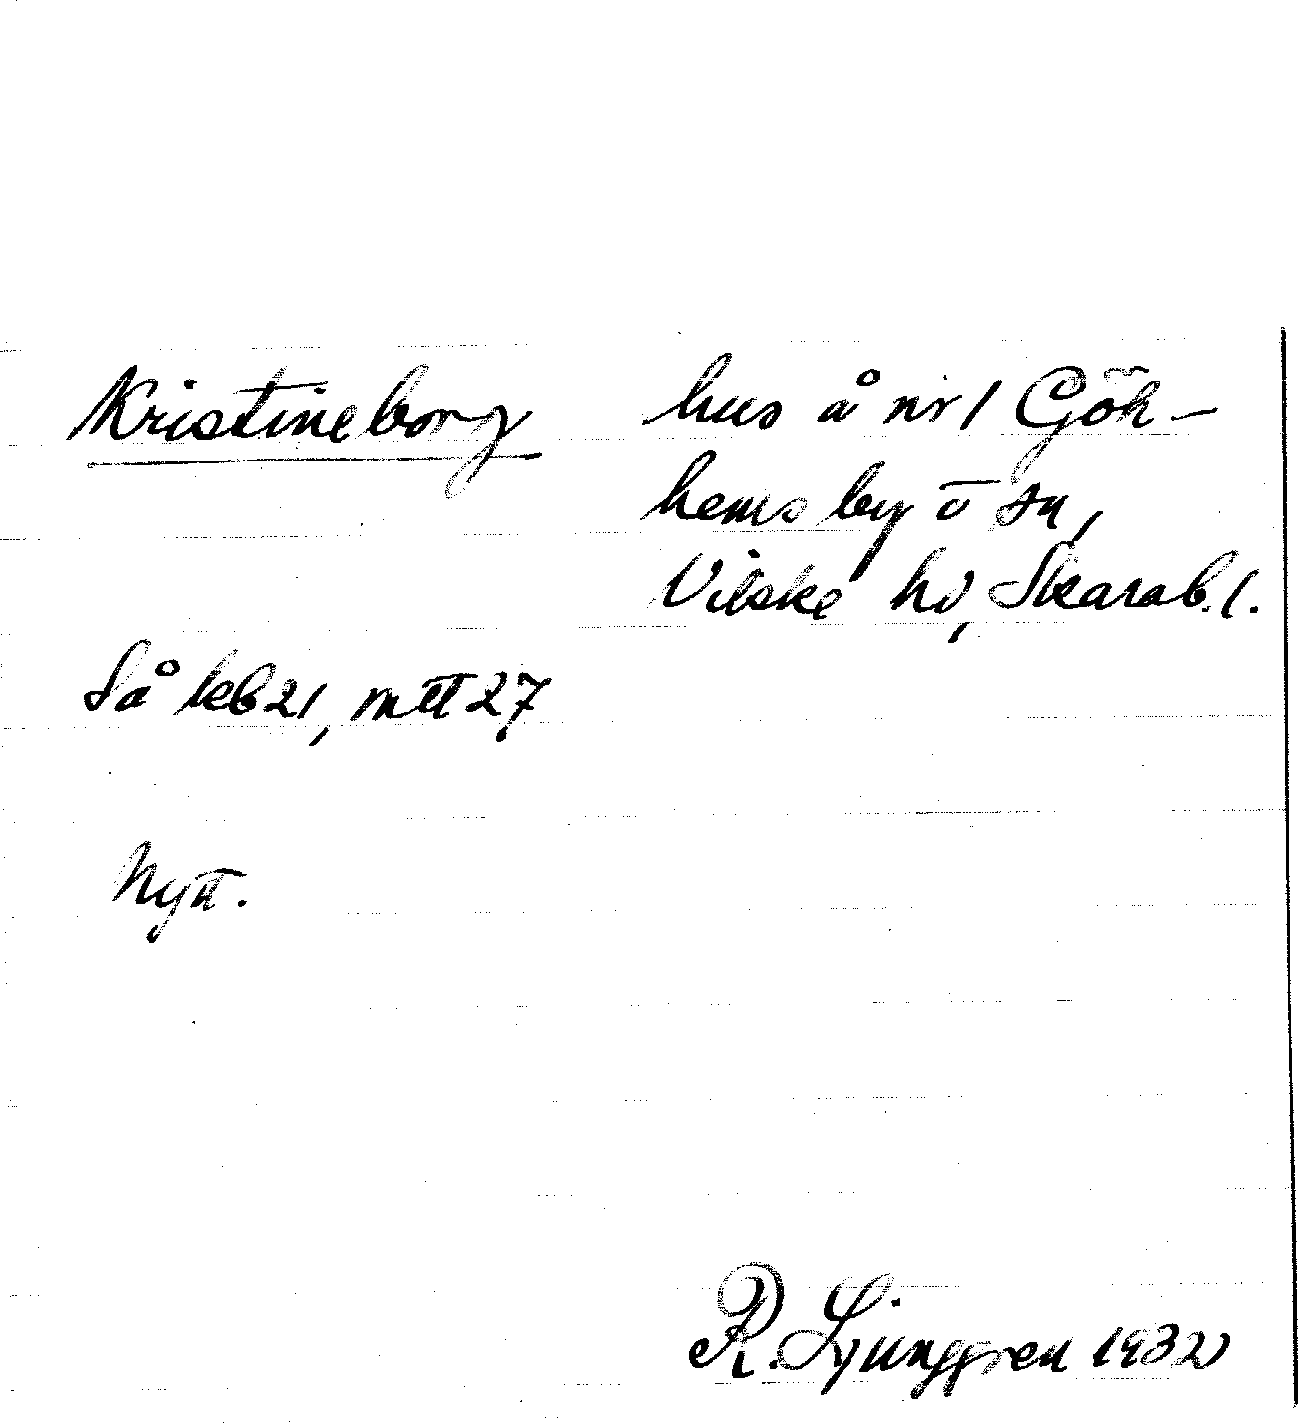 Kristineborg
hus å nr 1 Gök-
hems by o sn,
Vilske hd, Skarab. l.
Så kb 21, mtl 27
Nytt.
R. Ljunggren 1932